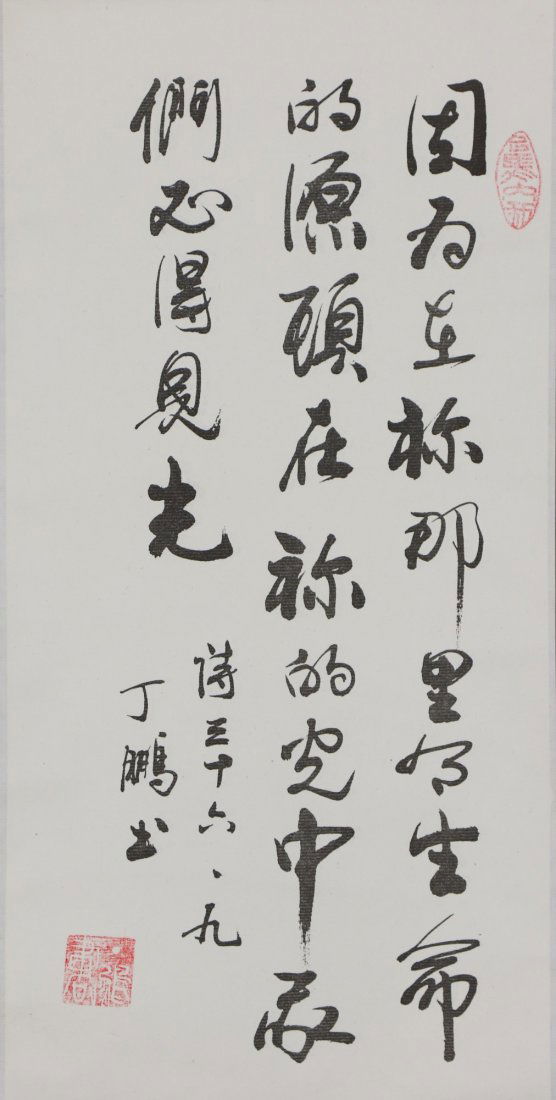 因为在祢那里有生命
的源頭在祢的光中我
們必得見光
詩三十六、九
丁鵬书